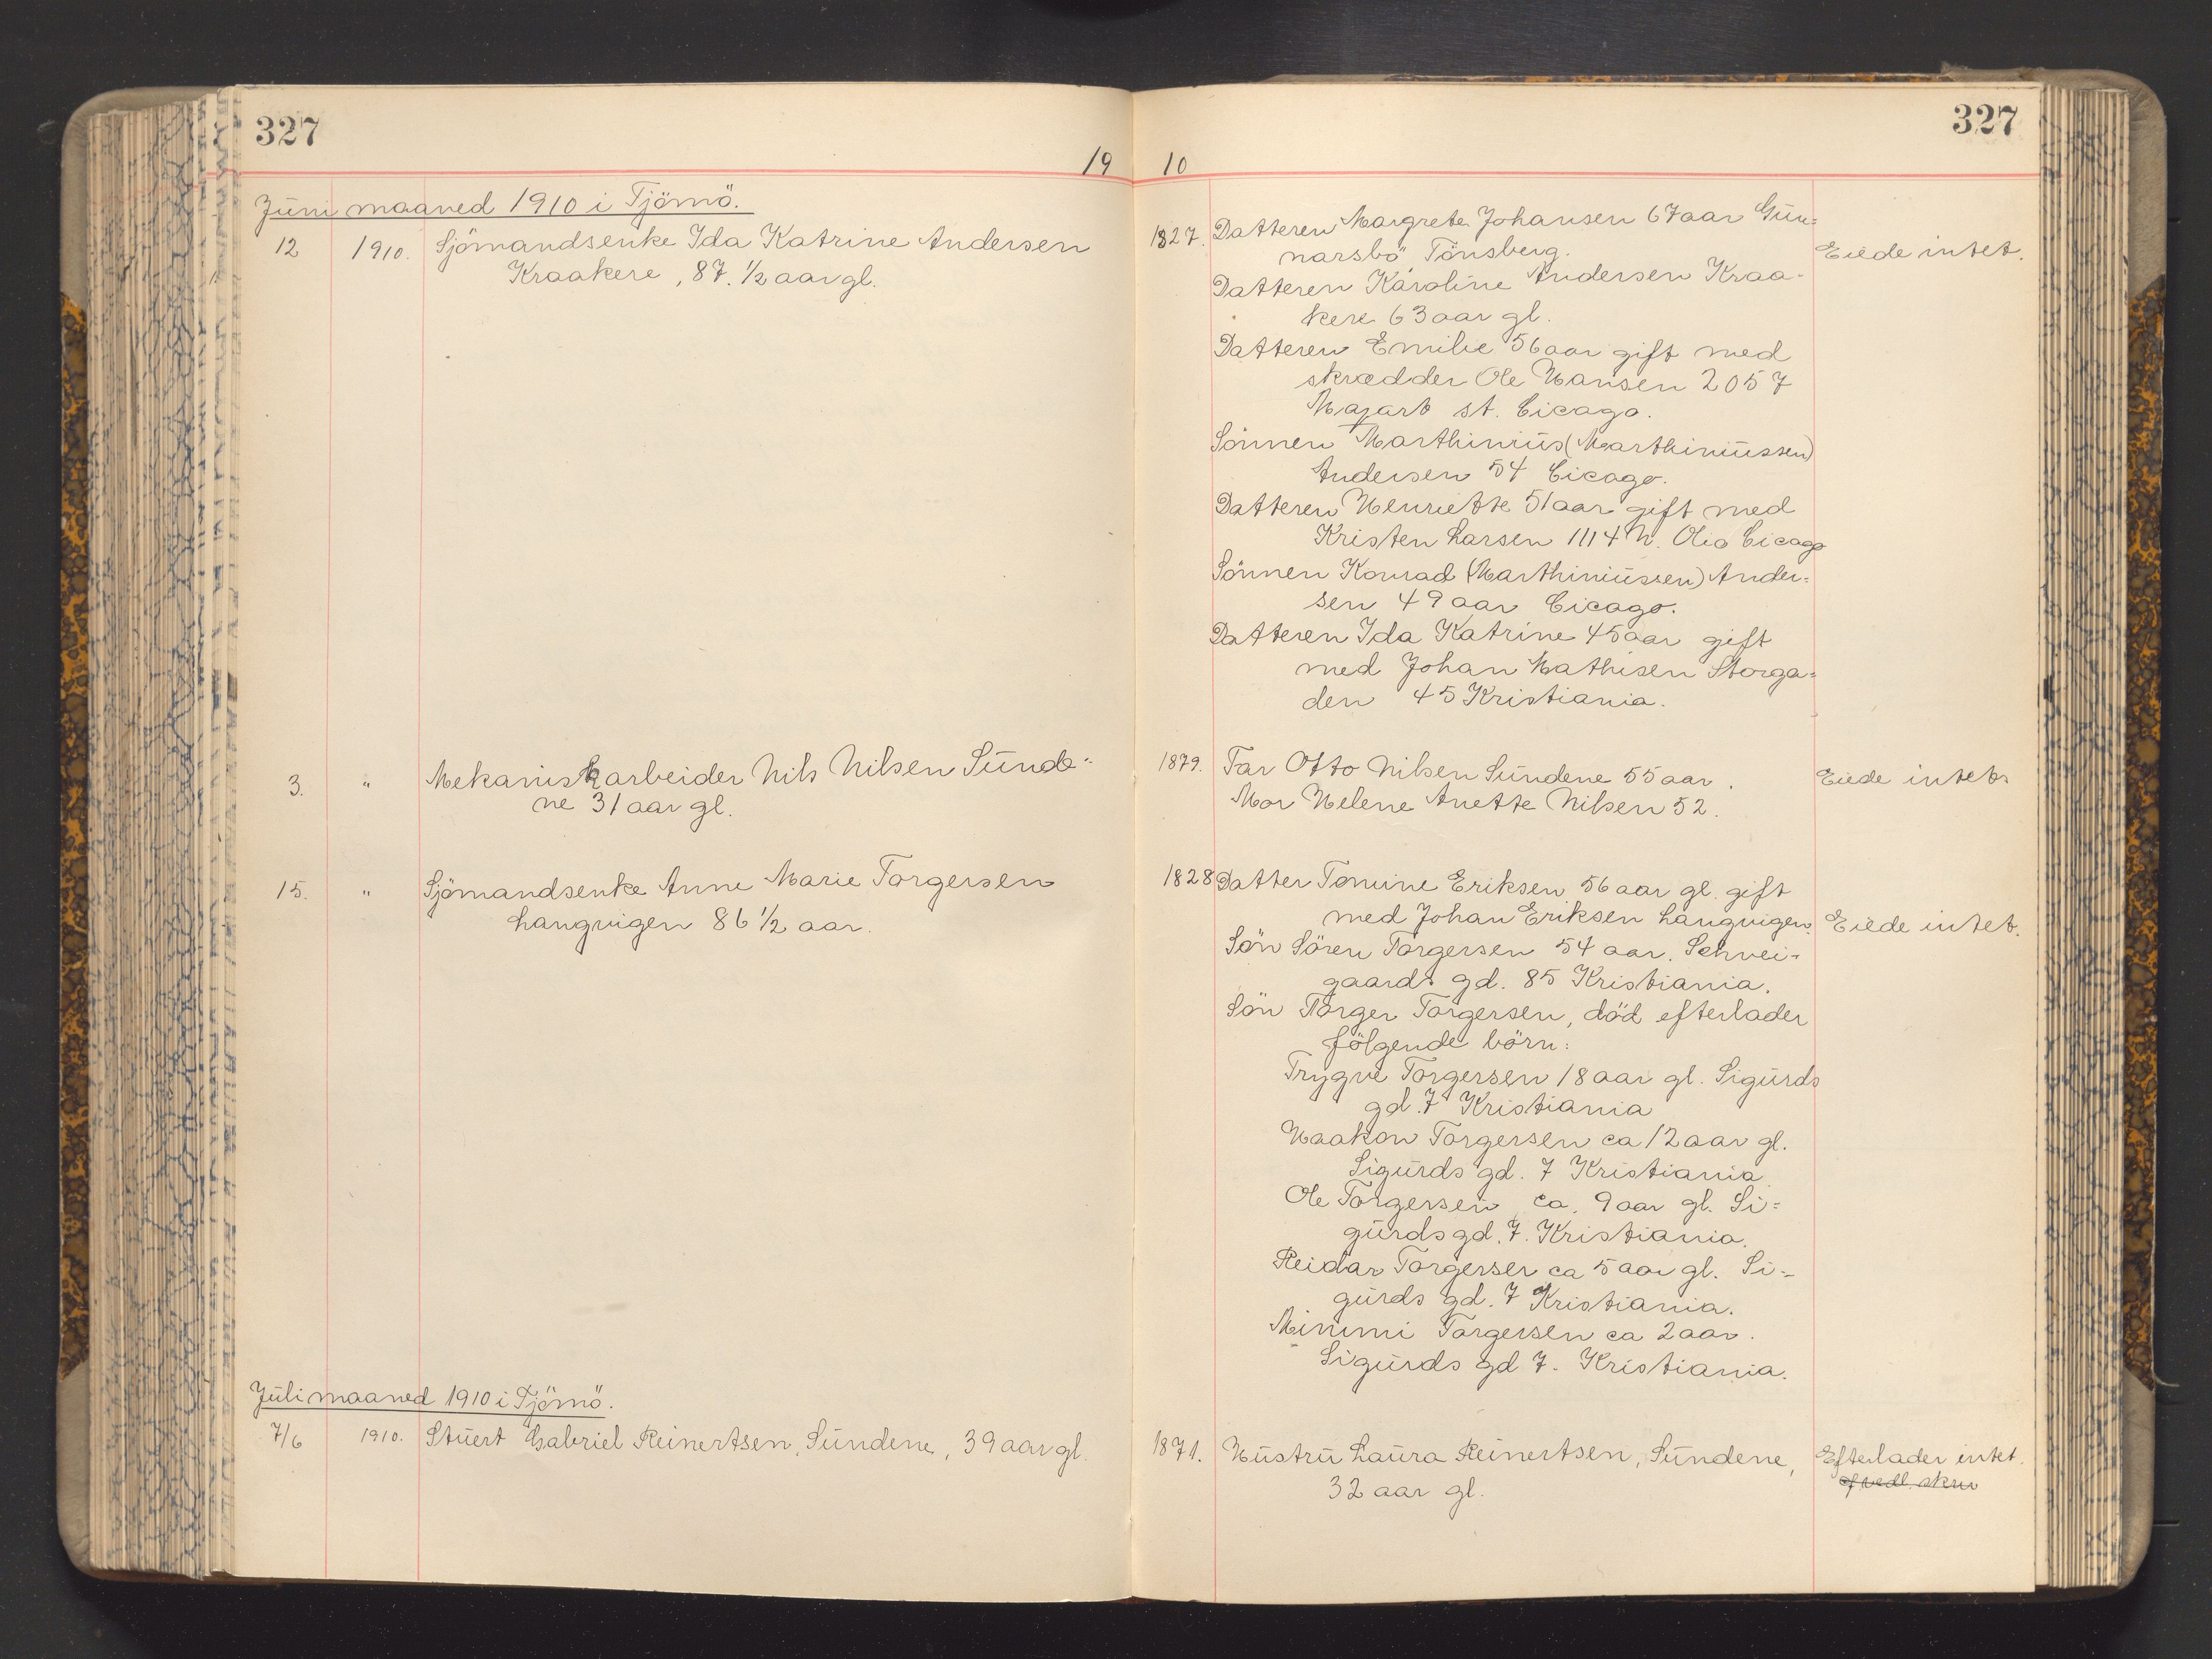 327
327
19 10
Juni maaned 1910 i Tjömö.
12 1910. Sjömandsenke Ida Katrine Andersen
Kraakere, 87. 1/2 aar gl.
1827. Datteren Margrete Johansen 67 aar Gun=
narsbö Tönsberg.
Eiede intet.
Datteren Karoline Andersen Kraa-
kere 63 aar gl.
Datteren Emilie 56 aar gift med
skrædder Ole Hansen 2057
st. Cicago.
Sönnen Marthinius (Marthiniussen)
Andersen 54 Cicago.
Datteren Henriette 51 aar gift med
Kristen Larsen 1114 N. Cicago
Sönnen Konrad (Marthiniussen) Ander=
sen 49 aar Cicago.
Datteren Ida Katrine 45 aar gift
med Johan Mathisen Storga=
den 45 Kristiania.
3. " Mekanisk arbeider Nils Nilsen Sunde=
ne 31 aar gl.
1879. Far Otto Nilsen Sundene 55 aar.
Eiede intet.
Mor Helene Anette Nilsen 52.
15. " Sjömandsenke Anne Marie Torgersen
Langvigen 86 1/2 aar.
1828 Datter Tomine Eriksen 56 aar gl. gift
med Johan Eriksen Langvigen.
Eiede intet.
Sön Sören Torgersen 54 aar. Schwei=
gaards gd. 85 Kristiania.
Sön Torger Torgersen, död efterlader
fölgende börn:
Trygve Torgersen 18 aar gl. Sigurds
gd. 7 Kristiania
Haakon Torgersen ca 12 aar gl.
Sigurds gd. 7 Kristiania
Ole Torgersen ca. 9 aar gl. Si=
gurds gd. 7. Kristiania.
Reidar Torgersen ca 5 aar gl. Si=
gurds gd. 7 Kristiania.
Mimmi Torgersen ca 2 aar.
Sigurds gd 7. Kristiania.
Juli maaned 1910 i Tjömö.
7/6 1910. Stuert Gabriel Reinertsen, Sundene, 39 aar gl.
1871. Hustru Laura Reinertsen, Sundene,
32 aar gl.
Efterlader intet.